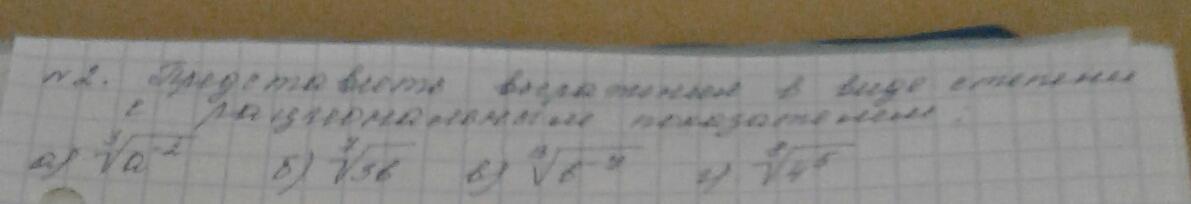 №2. Представить выражения в виде степени
с рациональным показателем:
а) ∛a⁻² б) ∜3b в) √b⁻⁹ г) √4⁵